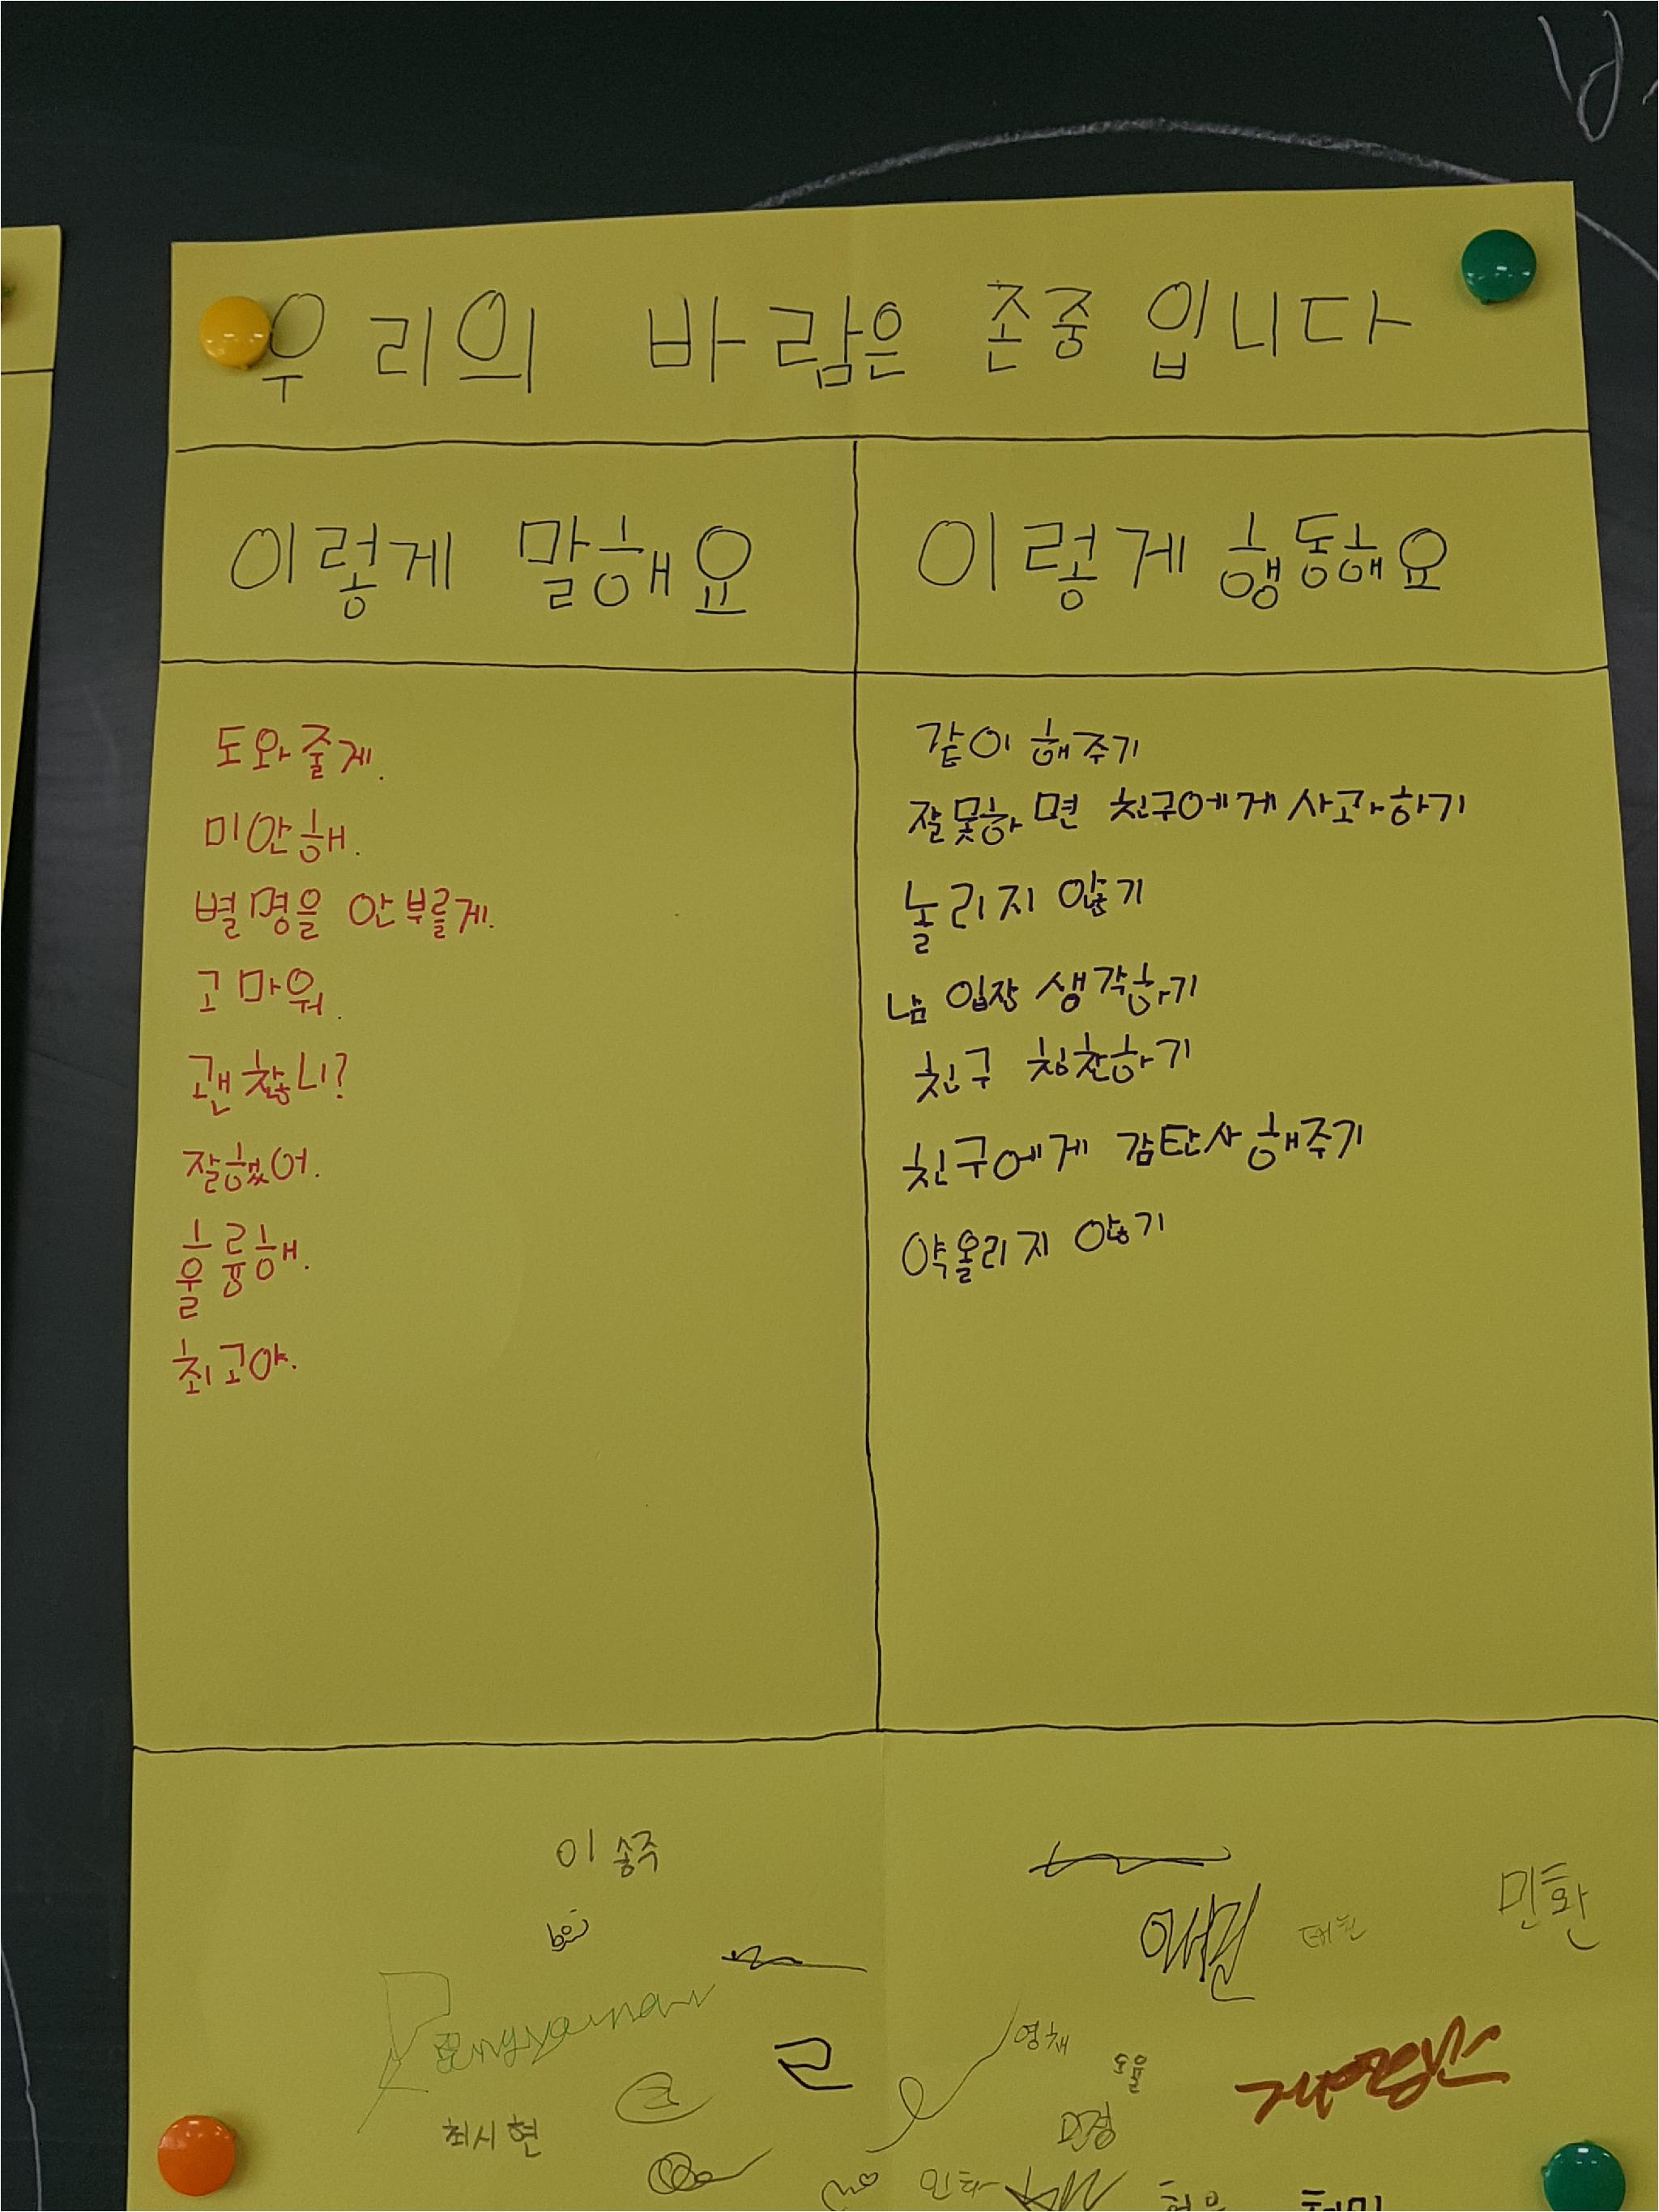 우리의 바람은 존중입니다
이렇게 말해요
이렇게 행동해요
도와줄게.
미안해.
별명을 안부를게.
고마워.
괜찮니?
잘했어.
훌륭해.
최고야.
같이 해주기
잘못하면 친구에게 사과하기
놀리지 않기
남 입장 생각하기
친구 칭찬하기
친구에게 감탄사해주기
약올리지 않기
이송주
민환
영채
도율
최시현
민정